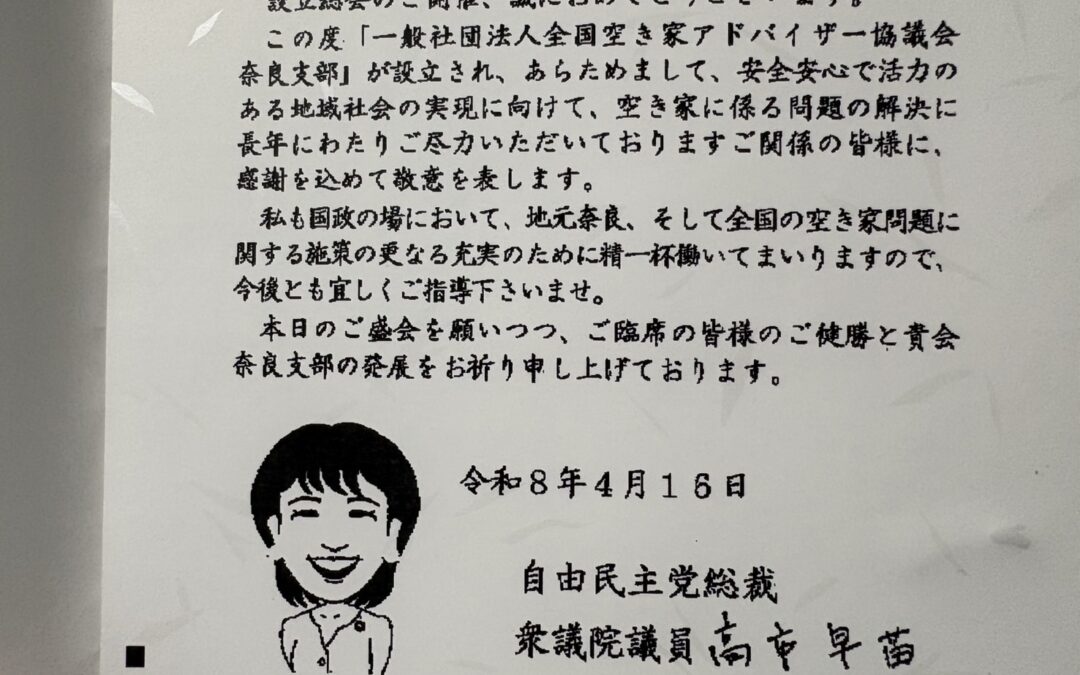 設立総会のご開催、誠におめでとうございます。
この度「一般社団法人全国空き家アドバイザー協議会
奈良支部」が設立され、あらためまして、安全安心で活力の
ある地域社会の実現に向けて、空き家に係る問題の解決に
長年にわたりご尽力いただいておりますご関係の皆様に、
感謝を込めて敬意を表します。
私も国政の場において、地元奈良、そして全国の空き家問題に
関する施策の更なる充実のために精一杯働いてまいりますので、
今後とも宜しくご指導下さいませ。
本日のご盛会を願いつつ、ご臨席の皆様のご健勝と貴会
奈良支部の発展をお祈り申し上げております。
令和8年4月16日
自由民主党総裁
衆議院議員 高市早苗